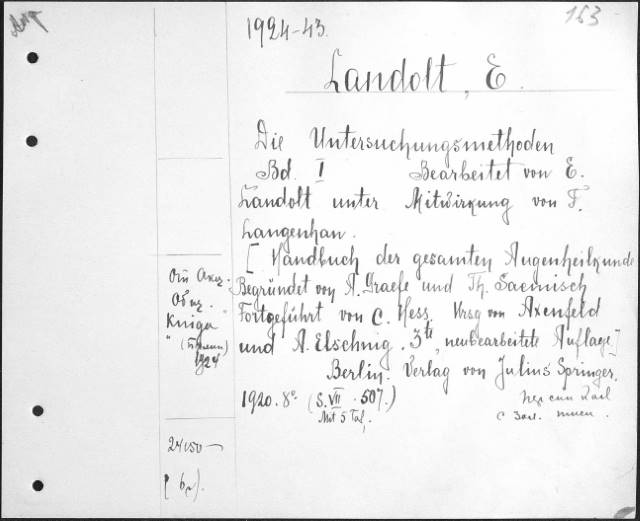 153
1924-43.
Landolt, E.
Die Untersuchungsmethoden
Bd. I Bearbeitet von E.
Landolt unter Mitwirkung von F.
Langenhan.
[Handbuch der gesamten Augenheilkunde
Begründet von A. Graefe und Th. Saemisch
Fortgeführt von C. Hess. Hrsg von Axenfeld
und A. Elschnig. 3te, neubearbeitete Auflage]
Berlin. Verlag von Julius Springer.
1920. 8° (S. VII . 507.)
Mit 5 Taf.
От Акц.
Общ.
Книга
1924
24150